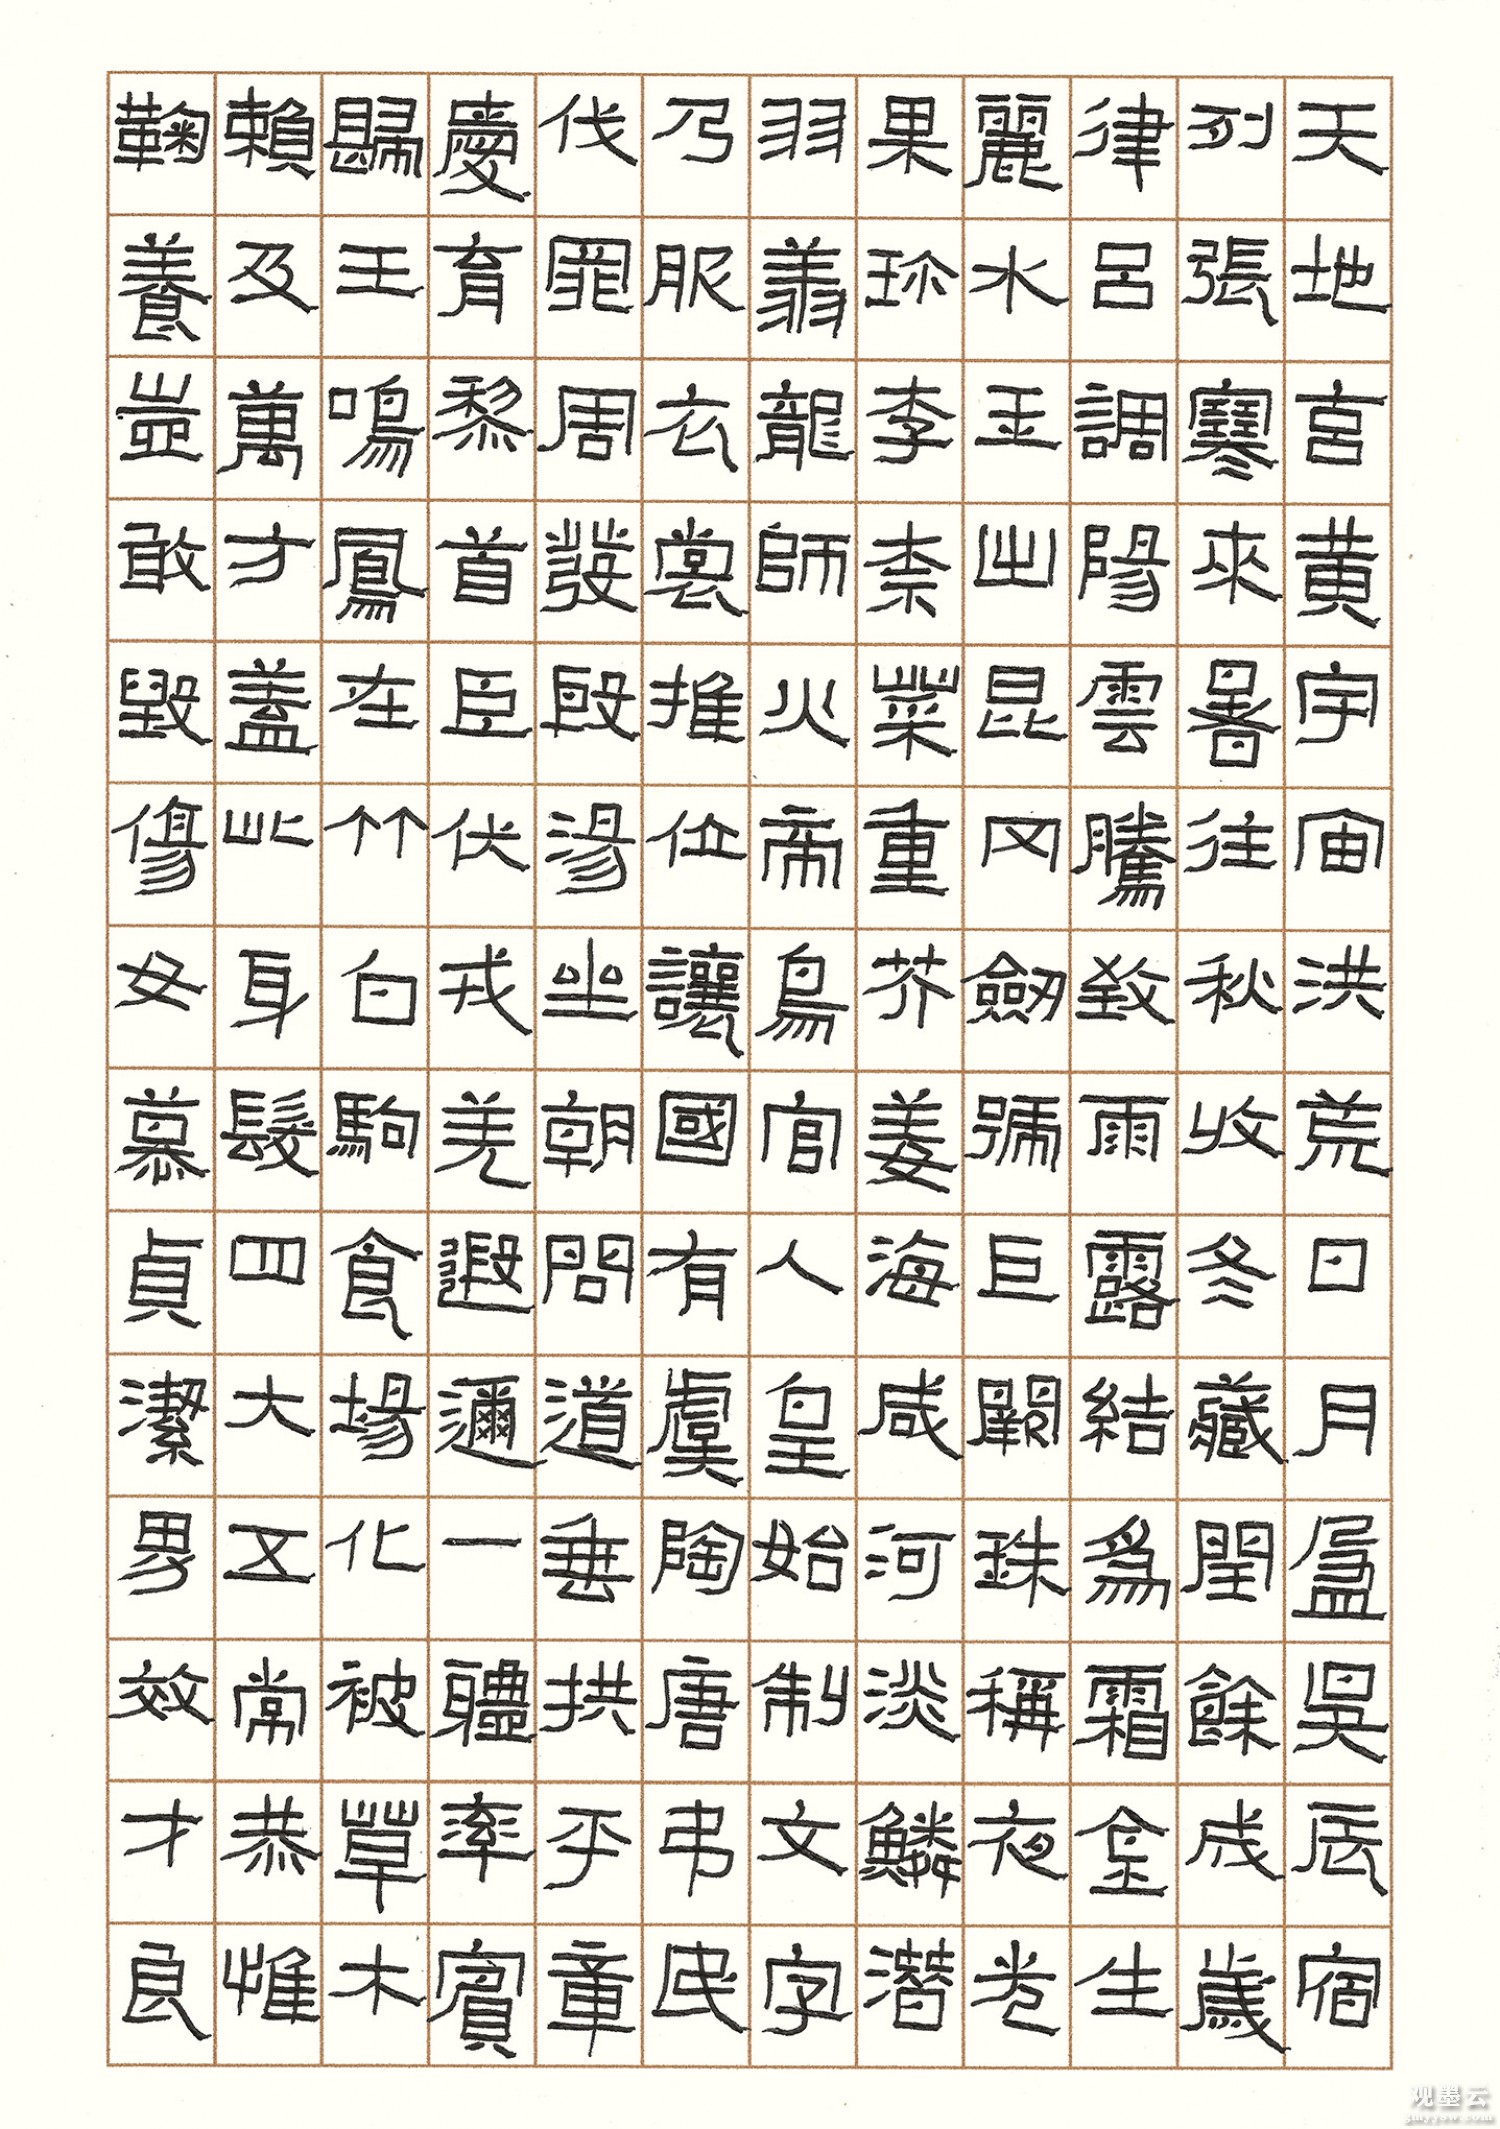 天地宮黄宇宙洪荒日月盈吳辰宿
列張寒來暑往秋收冬藏閏餘成歲
律呂調陽雲騰致雨露結爲霜金生
麗水玉出昆岡劒號巨闕珠稱夜光
果珍李柰菜重芥姜海咸河淡鱗潛
羽翔龍師火帝鳥官人皇始制文字
乃服衣裳推位讓國有虞陶唐弔民
伐罪周發殷湯坐朝問道垂拱平章
愛育黎首臣伏戎羌遐邇一體率賓
歸王鳴鳳在竹白駒食場化被草木
賴及萬方蓋此身髮四大五常恭惟
鞠養豈敢毀傷女慕貞潔男效才良
观墨云